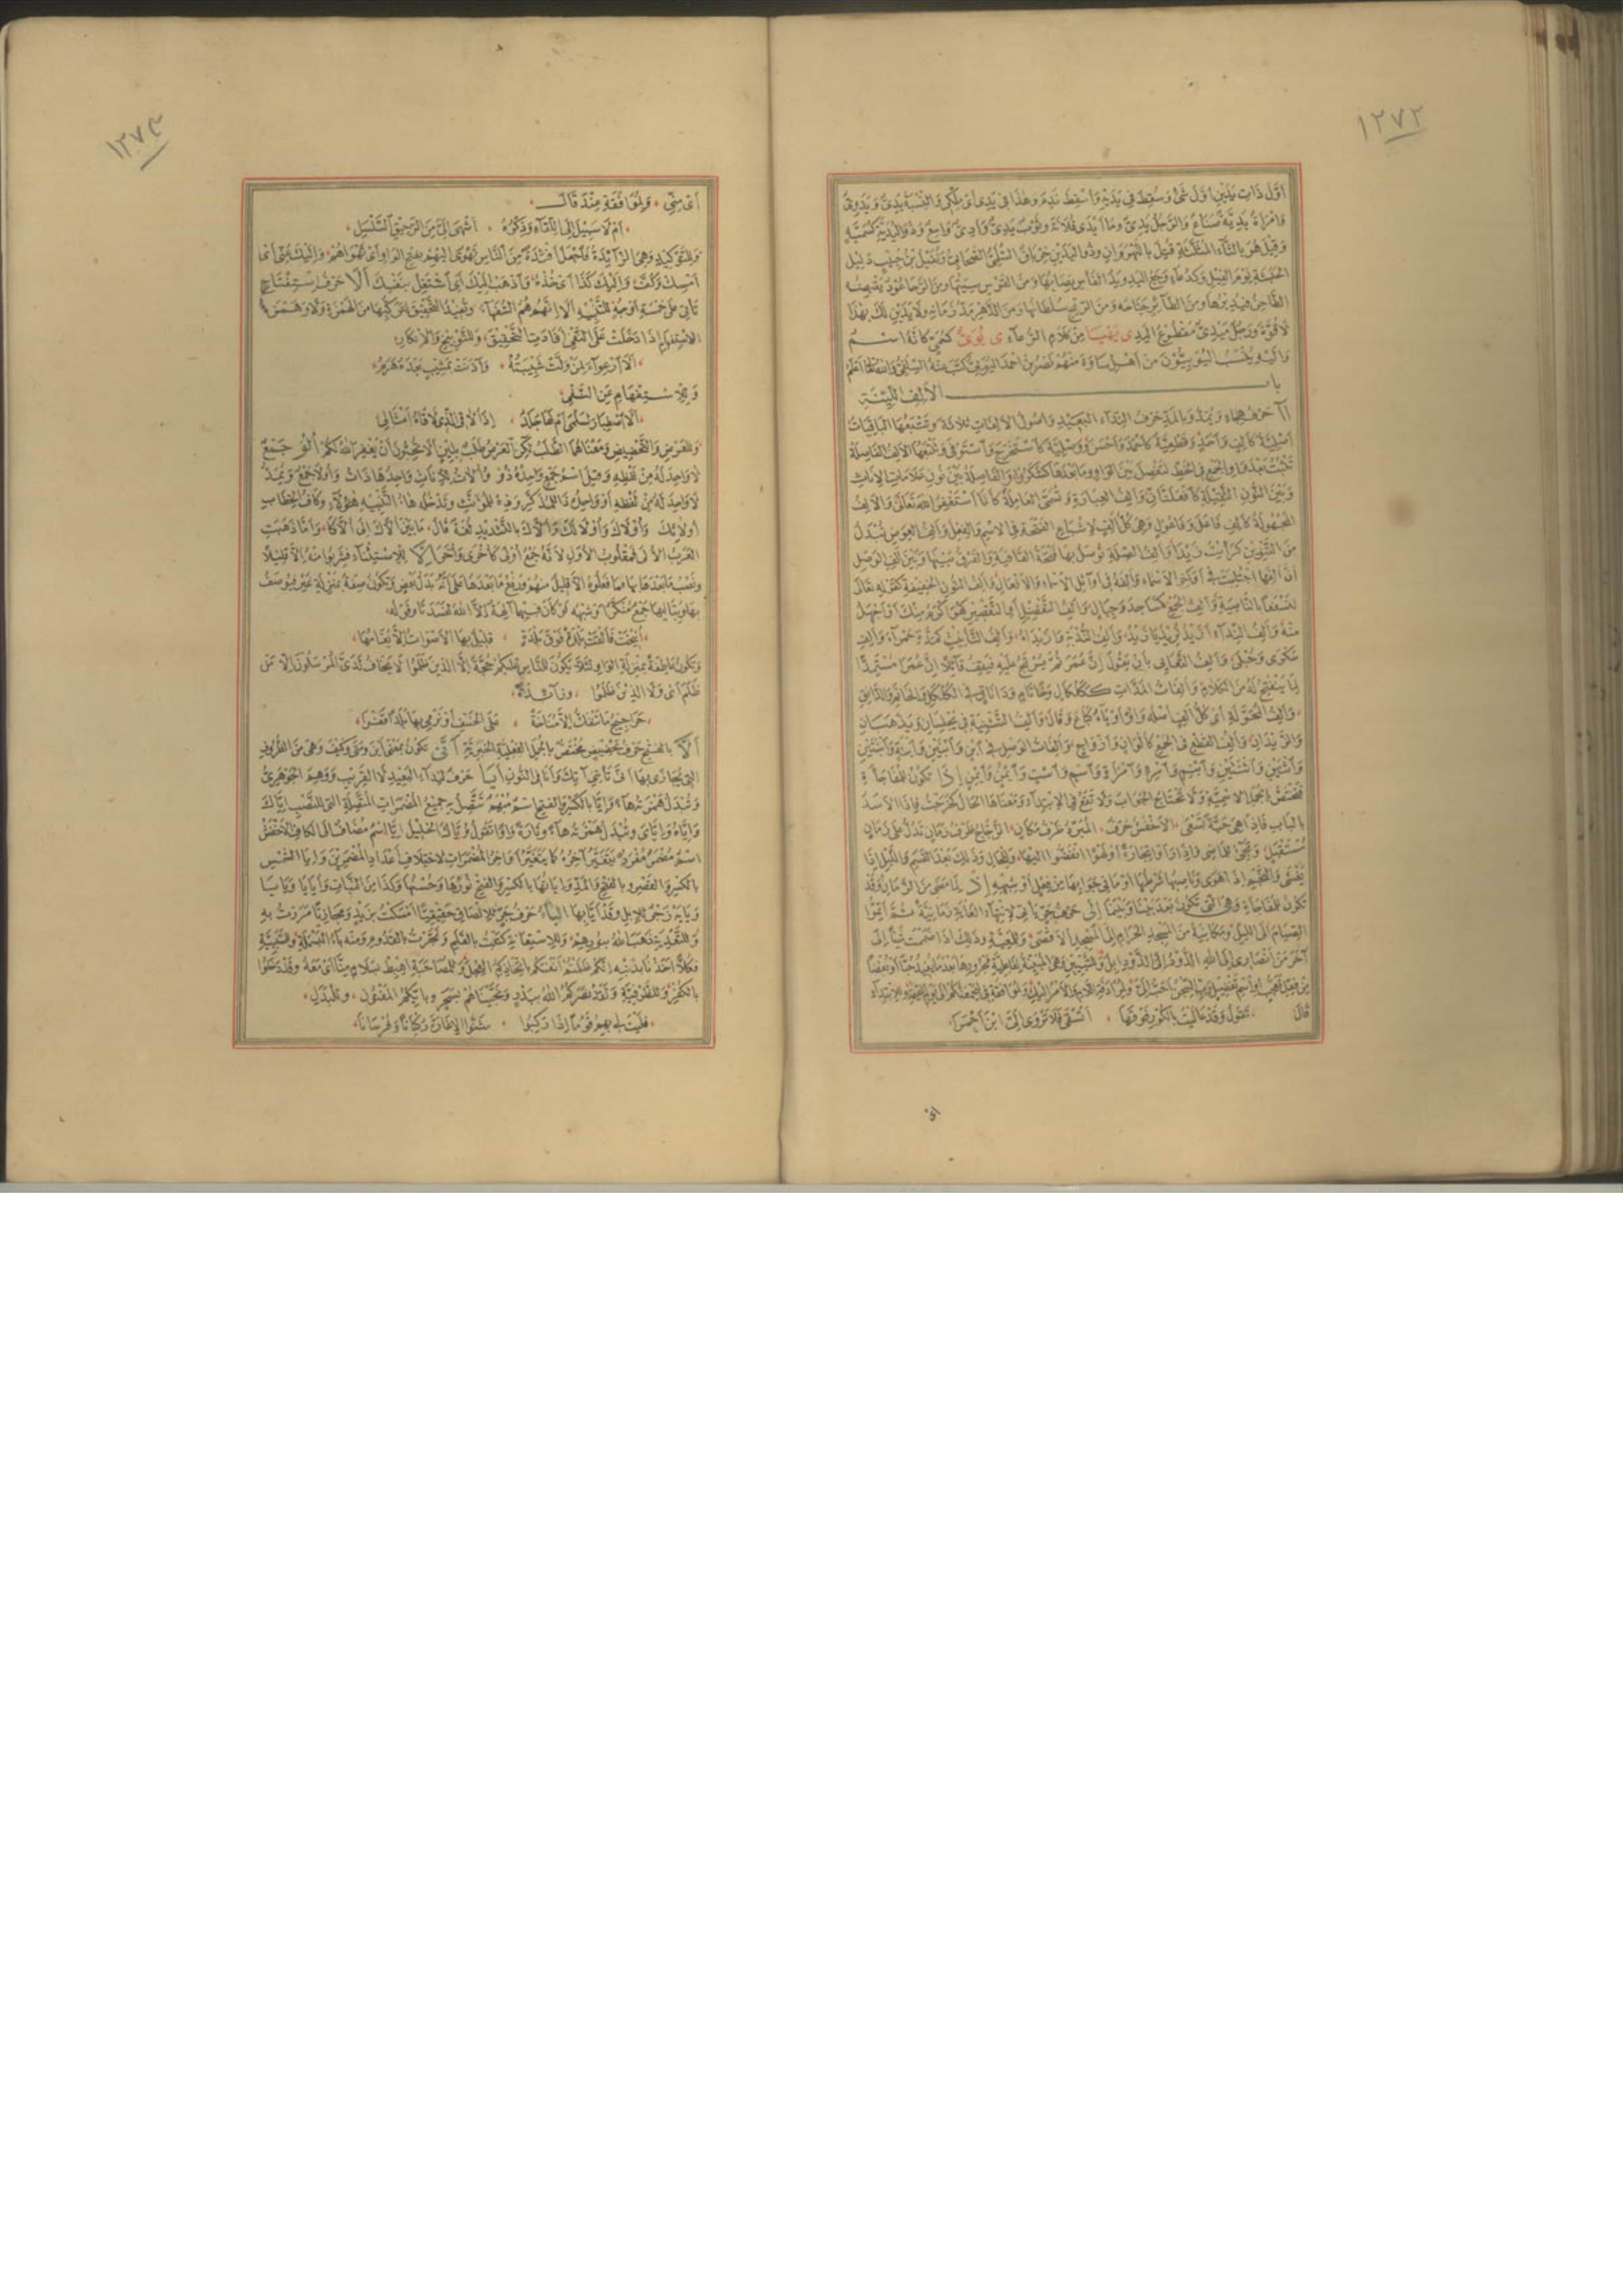 ١٢٧٢
أَوَّلَ ذَاتِ يَدَيْنِ أَوَّلَ شَىْءٍ وَسُقِطَ فِى يَدَيْهِ وَأُسْقِطَ نَدِمَ وَهٰذَا فِى يَدِى أَىْ مِلْكِى وَالنِّسْبَةُ يَدِىٌّ وَيَدَوِىٌّ
وَامْرَأَةٌ يَدِيَّةٌ صَنَاعٌ وَالرَّجُلُ يَدِىٌّ وَمَا أَيْدَى فُلَانَةَ وَثَوْبٌ يَدِىٌّ وَأَدِىٌّ وَاسِعٌ وَذُو الْيُدَيَّةِ كَسُمَيَّةَ
وَقِيلَ هُوَ بِالثَّاءِ الْمُثَلَّثَةِ قُتِلَ بِالنَّهْرَوَانِ وَذُو الْيَدَيْنِ خِرْبَاقٌ السُّلَمِىُّ الصَّحَابِىُّ وَنُفَيْلُ بْنُ حَبِيبٍ دَلِيلُ
الْحَبَشَةِ يَوْمَ الْفِيلِ وَيَدُ الْفَأْسِ نِصَابُهَا وَمِنَ الْقَوْسِ سِيَتُهَا وَمِنَ الرَّحَا عُودٌ يَقْبِضُهُ
الطَّاحِنُ فَيُدِيرُهَا وَمِنَ الطَّائِرِ جَنَاحُهُ وَمِنَ الرِّيحِ سُلْطَانُهَا وَمِنَ الدَّهْرِ مَدُّ زَمَانِهِ وَلَا يَدَيْنِ لَكَ بِهٰذَا
لَا قُوَّةَ وَرَجُلٌ مَيْدِىٌّ مَقْطُوعُ الْيَدِ ى يَهْيَا مِنْ كَلَامِ الرِّعَآءِ ى يُوَىٌّ كَسُمَىٍّ كَأَنَّهُ اسْمٌ
وَإِلَيْهِ يُنْسَبُ الْيُوَيِيُّونَ مِنْ أَهْلِ سَاوَةَ مِنْهُمْ نَصْرُ بْنُ أَحْمَدَ الْيُوَيِىُّ كَتَبَ عَنْهُ السِّلَفِىُّ وَاللهُ تَعَالَى أَعْلَمُ
بَابُ الأَلِفِ اللَّيِّنَةِ
آ حَرْفُ هِجَاءٍ وَيُمَدُّ وَبِالْمَدِّ حَرْفٌ لِنِدَاءِ الْبَعِيدِ وَأُصُولُ الْأَلِفَاتِ ثَلَاثَةٌ وَتَتْبَعُهَا الْبَاقِيَاتُ
أَصْلِيَّةٌ كَأَلِفٍ وَأَخَذَ وَقَطْعِيَّةٌ كَأَحْمَدَ وَأَحْسَنَ وَوَصْلِيَّةٌ كَاسْتَخْرَجَ وَاسْتَوْفَى وَتَتْبَعُهَا الأَلِفُ الْفَاصِلَةُ
تَثْبُتُ بَعْدَ وَاوِ الْجَمْعِ فِى الْخَطِّ لِتَفْصِلَ بَيْنَ الْوَاوِ وَمَا بَعْدَهَا كَشَكَرُوا وَالْفَاصِلَةُ بَيْنَ نُونِ عَلَامَاتِ الإِنَاثِ
وَبَيْنَ النُّونِ الثَّقِيلَةِ كَافْعَلْنَانِّ وَأَلِفُ الْعِبَارَةِ وَتُسَمَّى الْعَامِلَةَ كَأَنَا أَسْتَغْفِرُ اللهَ تَعَالَى وَالْأَلِفُ
الْمَجْهُولَةُ كَأَلِفِ فَاعِلٍ وَفَاعُولٍ وَهِىَ كُلُّ أَلِفٍ لِإِشْبَاعِ الْفَتْحَةِ فِى الِاسْمِ وَالْفِعْلِ وَأَلِفُ الْعِوَضِ تُبْدَلُ
مِنَ التَّنْوِينِ كَرَأَيْتُ زَيْدًا وَأَلِفُ الصِّلَةِ تُوصَلُ بِهَا فَتْحَةُ الْقَافِيَةِ وَالْفَرْقُ بَيْنَهَا وَبَيْنَ أَلِفِ الْوَصْلِ
أَنَّ أَلِفَهَا اجْتُلِبَتْ فِى أَوَاخِرِ الْأَسْمَاءِ وَأَلِفُهُ فِى أَوَائِلِ الْأَسْمَاءِ وَالْأَفْعَالِ وَأَلِفُ النُّونِ الْخَفِيفَةِ كَقَوْلِهِ تَعَالَى
لَنَسْفَعًا بِالنَّاصِيَةِ وَأَلِفُ الْجَمْعِ كَمَسَاجِدَ وَجِبَالٍ وَأَلِفُ التَّفْضِيلِ وَالتَّقْصِيرِ كَهُوَ أَكْرَمُ مِنْكَ وَأَجْهَلُ
مِنْهُ وَأَلِفُ النِّدَآءِ أَزَيْدُ تُرِيدُ يَا زَيْدُ وَأَلِفُ النُّدْبَةِ وَازَيْدَاهُ وَأَلِفُ التَّأْنِيثِ كَمَدَّةِ حَمْرَآءَ وَأَلِفِ
سَكْرَى وَحُبْلَى وَأَلِفُ التَّعَايِى بِأَنْ يَقُولَ إِنَّ عُمَرَ ثُمَّ يُرْتَجُ عَلَيْهِ فَيَقِفُ قَائِلًا إِنَّ عُمَرَا مُسْتَمِدًّا
لِمَا يَنْفَتِحُ لَهُ مِنَ الْكَلَامِ وَأَلِفَاتُ الْمَدَّاتِ كَكَلْكَالٍ وَخَاتَامٍ وَدَانَاقٍ فِى الْكَلْكَلِ وَالْخَاتَمِ وَالدَّانِقِ
وَأَلِفُ الْمُحَوَّلَةِ أَىْ كُلُّ أَلِفٍ أَصْلُهُ وَاوٌ أَوْ يَآءٌ كَبَاعَ وَقَالَ وَأَلِفُ التَّثْنِيَةِ فِى يَجْلِسَانِ وَيَذْهَبَانِ
وَالزَّيْدَانِ وَأَلِفُ الْقَطْعِ فِى الْجَمْعِ كَأَلْوَانٍ وَأَزْوَاجٍ وَأَلِفَاتُ الْوَصْلِ فِى ابْنٍ وَابْنَيْنِ وَابْنَةٍ وَابْنَتَيْنِ
وَاثْنَيْنِ وَاثْنَتَيْنِ وَابْنِمٍ وَامْرِءٍ وَامْرَأَةٍ وَاسْمٍ وَاسْتٍ وَايْمُنِ وَايْمِنِ إِذَا تَكُونُ لِلْمُفَاجَأَةِ
فَتَخْتَصُّ بِالْجُمَلِ الِاسْمِيَّةِ وَلَا تَحْتَاجُ لِجَوَابٍ وَلَا تَقَعُ فِى الِابْتِدَآءِ وَمَعْنَاهَا الْحَالُ كَخَرَجْتُ فَإِذَا الأَسَدُ
بِالْبَابِ فَإِذَا هِىَ حَيَّةٌ تَسْعَى الأَخْفَشُ حَرْفٌ الْمُبَرِّدُ ظَرْفُ مَكَانٍ الزَّجَّاجُ ظَرْفُ زَمَانٍ تَدُلُّ عَلَى زَمَانٍ
مُسْتَقْبَلٍ وَتَجِىءُ لِلْمَاضِى وَإِذَا رَأَوْا تِجَارَةً أَوْ لَهْوًا انْفَضُّوا إِلَيْهَا وَلِلْحَالِ وَذٰلِكَ بَعْدَ الْقَسَمِ وَاللَّيْلِ إِذَا
يَغْشَى وَالنَّجْمِ إِذَا هَوَى وَنَاصِبُهَا شَرْطُهَا أَوْ مَا فِى جَوَابِهَا مِنْ فِعْلٍ أَوْ شِبْهِهِ إِذْ لِمَا مَضَى مِنَ الزَّمَانِ وَقَدْ
تَكُونُ لِلْمُفَاجَأَةِ وَهِىَ الَّتِى تَكُونُ بَعْدَ بَيْنَا وَبَيْنَمَا إِلَى حَرْفُ جَرٍّ تَأْتِى لِانْتِهَاءِ الْغَايَةِ زَمَانِيَّةً ثُمَّ أَتِمُّوا
الصِّيَامَ إِلَى اللَّيْلِ وَمَكَانِيَّةً مِنَ الْمَسْجِدِ الْحَرَامِ إِلَى الْمَسْجِدِ الأَقْصَى وَلِلْمَعِيَّةِ وَذٰلِكَ إِذَا ضَمَمْتَ شَيْئًا إِلَى
آخَرَ مَنْ أَنْصَارِى إِلَى اللهِ الذَّوْدُ إِلَى الذَّوْدِ إِبِلٌ وَلِلتَّبْيِينِ وَهِىَ الْمُبَيِّنَةُ لِفَاعِلِيَّةِ مَجْرُورِهَا بَعْدَ مَا يُفِيدُ حُبًّا أَوْ بُغْضًا
مِنْ فِعْلِ تَعَجُّبٍ أَوِ اسْمِ تَفْضِيلٍ رَبِّ السِّجْنُ أَحَبُّ إِلَىَّ وَلِمُرَادَفَةِ اللَّامِ وَالأَمْرُ إِلَيْكِ وَلِمُوَافَقَةِ فِى لَيَجْمَعَنَّكُمْ إِلَى يَوْمِ الْقِيٰمَةِ وَلِلِابْتِدَآءِ
قَالَ تَقُولُ وَقَدْ عَالَيْتُ بِالْكُورِ فَوْقَهَا أَتُسْقَى فَلَا تَرْوَى إِلَىَّ ابْنُ أَحْمَرَا
أى
١٢٧٣
أَىْ مِنِّى وَلِمُوَافَقَةِ عِنْدَ قَالَ
أَمْ لَا سَبِيلَ إِلَى الشَّبَابِ وَذِكْرُهُ أَشْهَى إِلَىَّ مِنَ الرَّحِيقِ السَّلْسَلِ
وَلِلتَّوْكِيدِ وَهِىَ الزَّائِدَةُ فَاجْعَلْ أَفْئِدَةً مِنَ النَّاسِ تَهْوَى إِلَيْهِمْ بِفَتْحِ الْوَاوِ أَىْ تَهْوَاهُمْ وَإِلَيْكَ عَنِّى أَىْ
أَمْسِكْ وَكُفَّ وَإِلَيْكَ كَذَا أَىْ خُذْهُ وَاذْهَبْ إِلَيْكَ أَىِ اشْتَغِلْ بِنَفْسِكَ أَلَا حَرْفُ اسْتِفْتَاحٍ
تَأْتِى عَلَى خَمْسَةِ أَوْجُهٍ لِلتَّنْبِيهِ أَلَا إِنَّهُمْ هُمُ السُّفَهَآءُ وَتُفِيدُ التَّحْقِيقَ لِتَرَكُّبِهَا مِنَ الْهَمْزَةِ وَلَا وَهَمْزَةُ
الِاسْتِفْهَامِ إِذَا دَخَلَتْ عَلَى النَّفْىِ أَفَادَتِ التَّحْقِيقَ وَلِلتَّوْبِيخِ وَالإِنْكَارِ
أَلَا ارْعِوَآءَ لِمَنْ وَلَّتْ شَبِيبَتُهُ وَآذَنَتْ بِمَشِيبٍ بَعْدَهُ هَرَمُ
وَلِلِاسْتِفْهَامِ عَنِ النَّفْىِ
أَلَا اصْطِبَارَ لِسَلْمَى أَمْ لَهَا جَلَدٌ إِذَا أُلَاقِى الَّذِى لَاقَاهُ أَمْثَالِى
وَلِلْعَرْضِ وَالتَّحْضِيضِ وَمَعْنَاهُمَا الطَّلَبُ لٰكِنِ الْعَرْضُ طَلَبٌ بِلِينٍ أَلَا تُحِبُّونَ أَنْ يَغْفِرَ اللهُ لَكُمْ أُلُو جَمْعٌ
لَا وَاحِدَ لَهُ مِنْ لَفْظِهِ وَقِيلَ اسْمُ جَمْعٍ وَاحِدُهُ ذُو وَأُلَاتُ لِلْإِنَاثِ وَاحِدُهَا ذَاتٌ وَأُولَا جَمْعٌ وَيُمَدُّ
لَا وَاحِدَ لَهُ مِنْ لَفْظِهِ أَوْ وَاحِدُهُ ذَا لِلْمُذَكَّرِ وَذِهْ لِلْمُؤَنَّثِ وَتَدْخُلُهُ هَاءُ التَّنْبِيهِ هٰؤُلَآءِ وَكَافُ الْخِطَابِ
أُولَئِكَ وَأُولَاكَ وَأُولَالِكَ وَأُلَّاكَ بِالتَّشْدِيدِ لُغَةٌ قَالَ مَا بَيْنَ أُلَّاكَ إِلَى أُلَّاكَا وَأَمَّا ذَهَبَتِ
الْعَرَبُ الأُلَى فَمَقْلُوبُ الأُوَلِ لِأَنَّهُ جَمْعُ أُولَى كَأُخْرَى وَأُخَرَ إِلَّا لِلِاسْتِثْنَاءِ فَشَرِبُوا مِنْهُ إِلَّا قَلِيلًا
وَنَصْبُ مَا بَعْدَهَا بِهَا مَا فَعَلُوهُ إِلَّا قَلِيلٌ مِنْهُمْ وَرَفْعُ مَا بَعْدَهَا عَلَى أَنَّهُ بَدَلُ بَعْضٍ وَتَكُونُ صِفَةً بِمَنْزِلَةِ غَيْرٍ فَيُوصَفُ
بِهَا وَبِتَالِيهَا جَمْعٌ مُنَكَّرٌ أَوْ شِبْهُهُ لَوْ كَانَ فِيهِمَا آلِهَةٌ إِلَّا اللهُ لَفَسَدَتَا وَقَوْلُهُ
أُنِيخَتْ فَأَلْقَتْ بَلْدَةً فَوْقَ بَلْدَةٍ قَلِيلٌ بِهَا الأَصْوَاتُ إِلَّا بُغَامُهَا
وَتَكُونُ عَاطِفَةً بِمَنْزِلَةِ الْوَاوِ لِئَلَّا يَكُونَ لِلنَّاسِ عَلَيْكُمْ حُجَّةٌ إِلَّا الَّذِينَ ظَلَمُوا لَا يَخَافُ لَدَىَّ الْمُرْسَلُونَ إِلَّا مَنْ
ظَلَمَ أَىْ وَلَا الَّذِينَ ظَلَمُوا وَزَائِدَةً
حَرَاجِيجُ مَا تَنْفَكُّ إِلَّا مُنَاخَةً عَلَى الْخَسْفِ أَوْ نَرْمِى بِهَا بَلَدًا قَفْرَا
أَلَّا بِالْفَتْحِ حَرْفُ تَحْضِيضٍ مُخْتَصٌّ بِالْجُمَلِ الْفِعْلِيَّةِ الْخَبَرِيَّةِ أَنَّى تَكُونُ بِمَعْنَى أَيْنَ وَمَتَى وَكَيْفَ وَهِىَ مِنَ الظُّرُوفِ
الَّتِى يُجَازَى بِهَا أَنَّى تَأْتِنِى آتِكَ وَأَنَا فِى النُّونِ أَيَا حَرْفٌ لِنِدَآءِ الْبَعِيدِ لَا الْقَرِيبِ وَوَهِمَ الْجَوْهَرِىُّ
وَتُبْدَلُ هَمْزَتُهُ هَآءً وَإِيَّا بِالْكَسْرِ وَالْفَتْحِ اسْمٌ مُبْهَمٌ تَتَّصِلُ بِهِ جَمِيعُ الْمُضْمَرَاتِ الْمُتَّصِلَةِ الَّتِى لِلنَّصْبِ إِيَّاكَ
وَإِيَّاهُ وَإِيَّاىَ وَتُبْدَلُ هَمْزَتُهُ هَآءً وَتَارَةً وَاوًا تَقُولُ وِيَّاكَ الْخَلِيلُ إِيَّا اسْمٌ مُضَافٌ إِلَى الْكَافِ الأَخْفَشُ
اسْمٌ مُضْمَرٌ مُفْرَدٌ يَتَغَيَّرُ آخِرُهُ كَمَا يَتَغَيَّرُ أَوَاخِرُ الْمُضْمَرَاتِ لِاخْتِلَافِ أَعْدَادِ الْمُضْمَرِينَ وَإِيَا الشَّمْسِ
بِالْكَسْرِ وَالْقَصْرِ وَبِالْفَتْحِ وَالْمَدِّ وَإِيَاتُهَا بِالْكَسْرِ وَالْفَتْحِ نُورُهَا وَحُسْنُهَا وَكَذَا مِنَ النَّبَاتِ وَأَيَايَا وَيَايَا
وَيَايَهْ زَجْرٌ لِلْإِبِلِ وَقَدْ أَيَّا بِهَا الْبَاءُ حَرْفُ جَرٍّ لِلْإِلْصَاقِ حَقِيقِيًّا أَمْسَكْتُ بِزَيْدٍ وَمَجَازِيًّا مَرَرْتُ بِهِ
وَلِلتَّعْدِيَةِ ذَهَبَ اللهُ بِنُورِهِمْ وَلِلِاسْتِعَانَةِ كَتَبْتُ بِالْقَلَمِ وَنَجَرْتُ بِالْقَدُومِ وَمِنْهُ بَآءُ الْبَسْمَلَةِ وَلِلسَّبَبِيَّةِ
فَكُلًّا أَخَذْنَا بِذَنْبِهِ إِنَّكُمْ ظَلَمْتُمْ أَنْفُسَكُمْ بِاتِّخَاذِكُمُ الْعِجْلَ وَلِلْمُصَاحَبَةِ اهْبِطْ بِسَلَامٍ مِنَّا أَىْ مَعَهُ وَقَدْ دَخَلُوا
بِالْكُفْرِ وَلِلظَّرْفِيَّةِ وَلَقَدْ نَصَرَكُمُ اللهُ بِبَدْرٍ وَنَجَّيْنَاهُمْ بِسَحَرٍ وَبِأَيِّكُمُ الْمَفْتُونُ وَلِلْبَدَلِ
فَلَيْتَ لِى بِهِمُ قَوْمًا إِذَا رَكِبُوا شَنُّوا الإِغَارَةَ رُكْبَانًا وَفُرْسَانَا